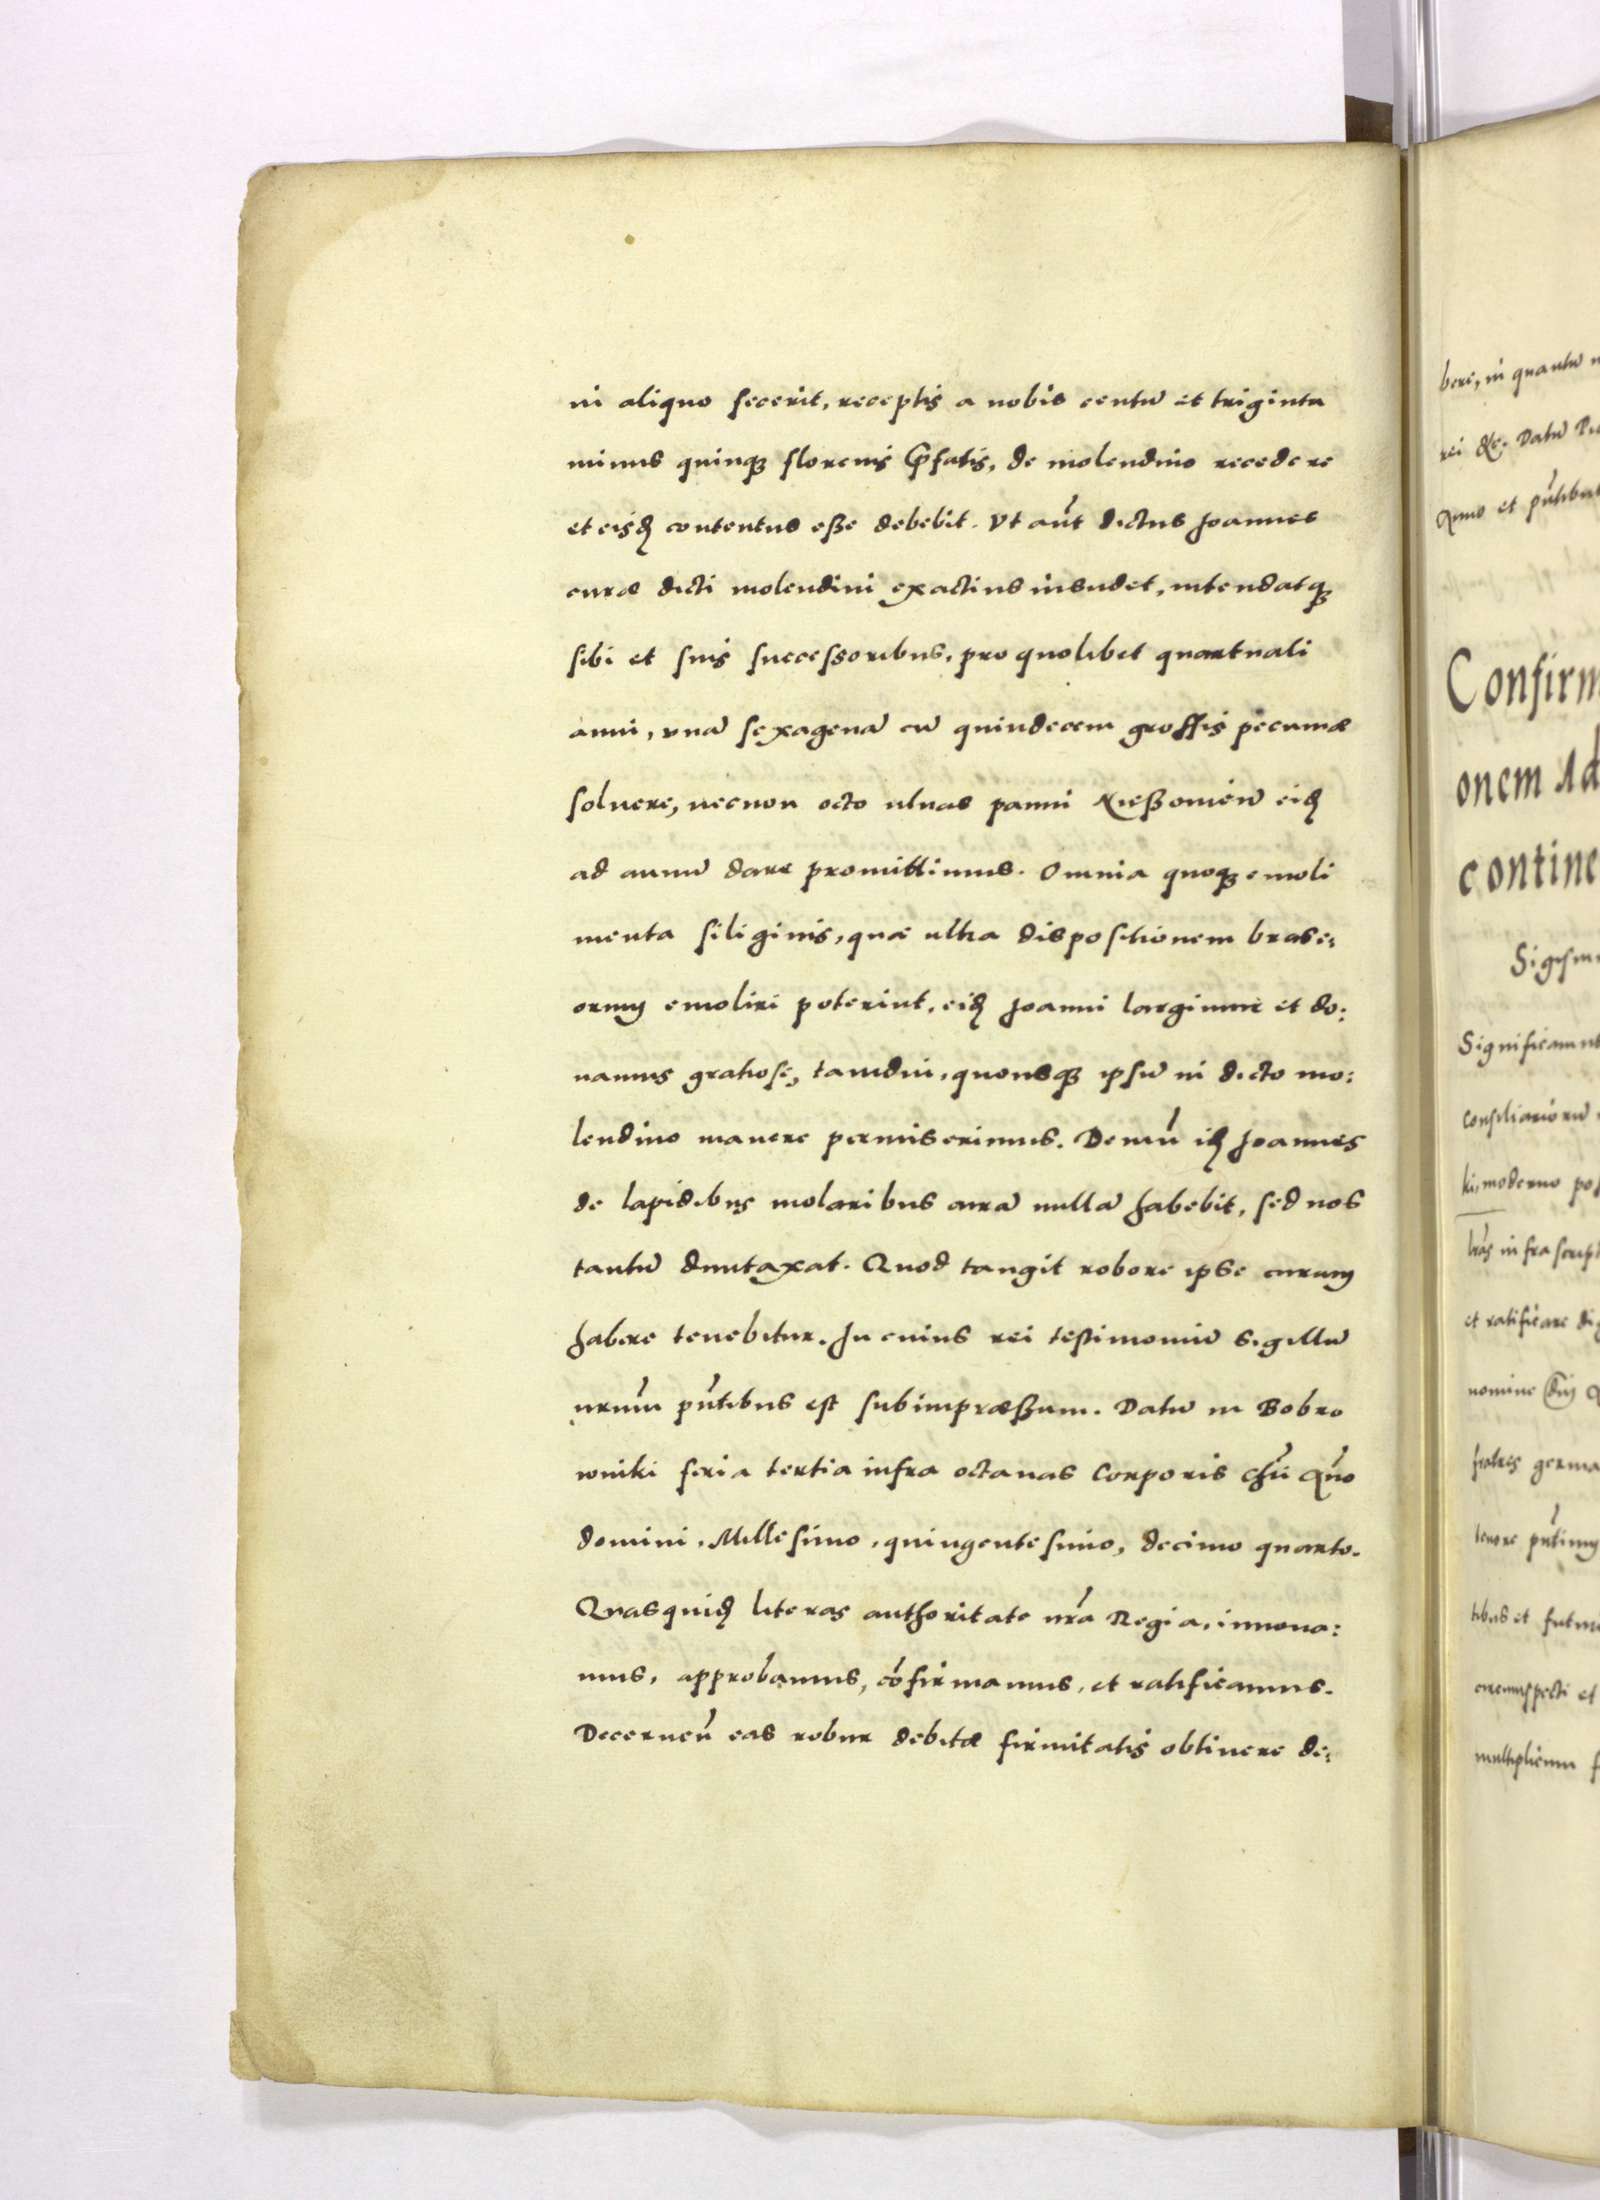 in aliquo fecerit, receptis a nobis centū et triginta
minus quinqꝫ florenis p̄fatis, de molendino recedere
et eisđ contentus eße debebit. Vt aūt dictus Joannes
curæ dicti molendini exactius insudet, intendatqꝫ
sibi et suis successoribus, pro quolibet quartuali
anni, vnā sexagenā cū quindecem grossis pecuniæ
soluere, necnon octo vlnas panni eiđ
ad annū dare promittimus. Omnia quoqꝫ emoli
menta siliginis, quæ vltra dispositionem brase:
orum emoliri poterint, eiđ Joanni largimur et do:
namus gratiose, tamdiu, quousqꝫ ipsū in dicto mo:
lendino manere permiserimus. Demū iđ Joannes
de lapidibus molaribus curā nullā habebit, sed nos
tantū duntaxat. Quod tangit robore ipse curam
habere tenebitur. In cuius rei testimoniū sigillū
nrūm pn̄tibus est subimpræßum. Datū in Bobro
wniki feria tertia infra octauas Corporis chr̄i Āno
domini, Millesimo, quingentesimo, decimo quarto.
Quasquiđ literas authoritate nrā Regia, innoua:
mus, approbamus, cōfirmamus, et ratificamus.
Decernen̄ eas robur debitæ firmitatis obtinere de:
bere, in quantū
rei &c. Datū
Anno et pn̄tibus
Confirm
onem Ad
contine
Sigism
Significamus
consiliariorū
ki, moderno pos
lrās infrascript
et ratificare di
nomine
fratres germa
tenore pn̄tium
tibus et futur
circumspecti et
multiplicium f